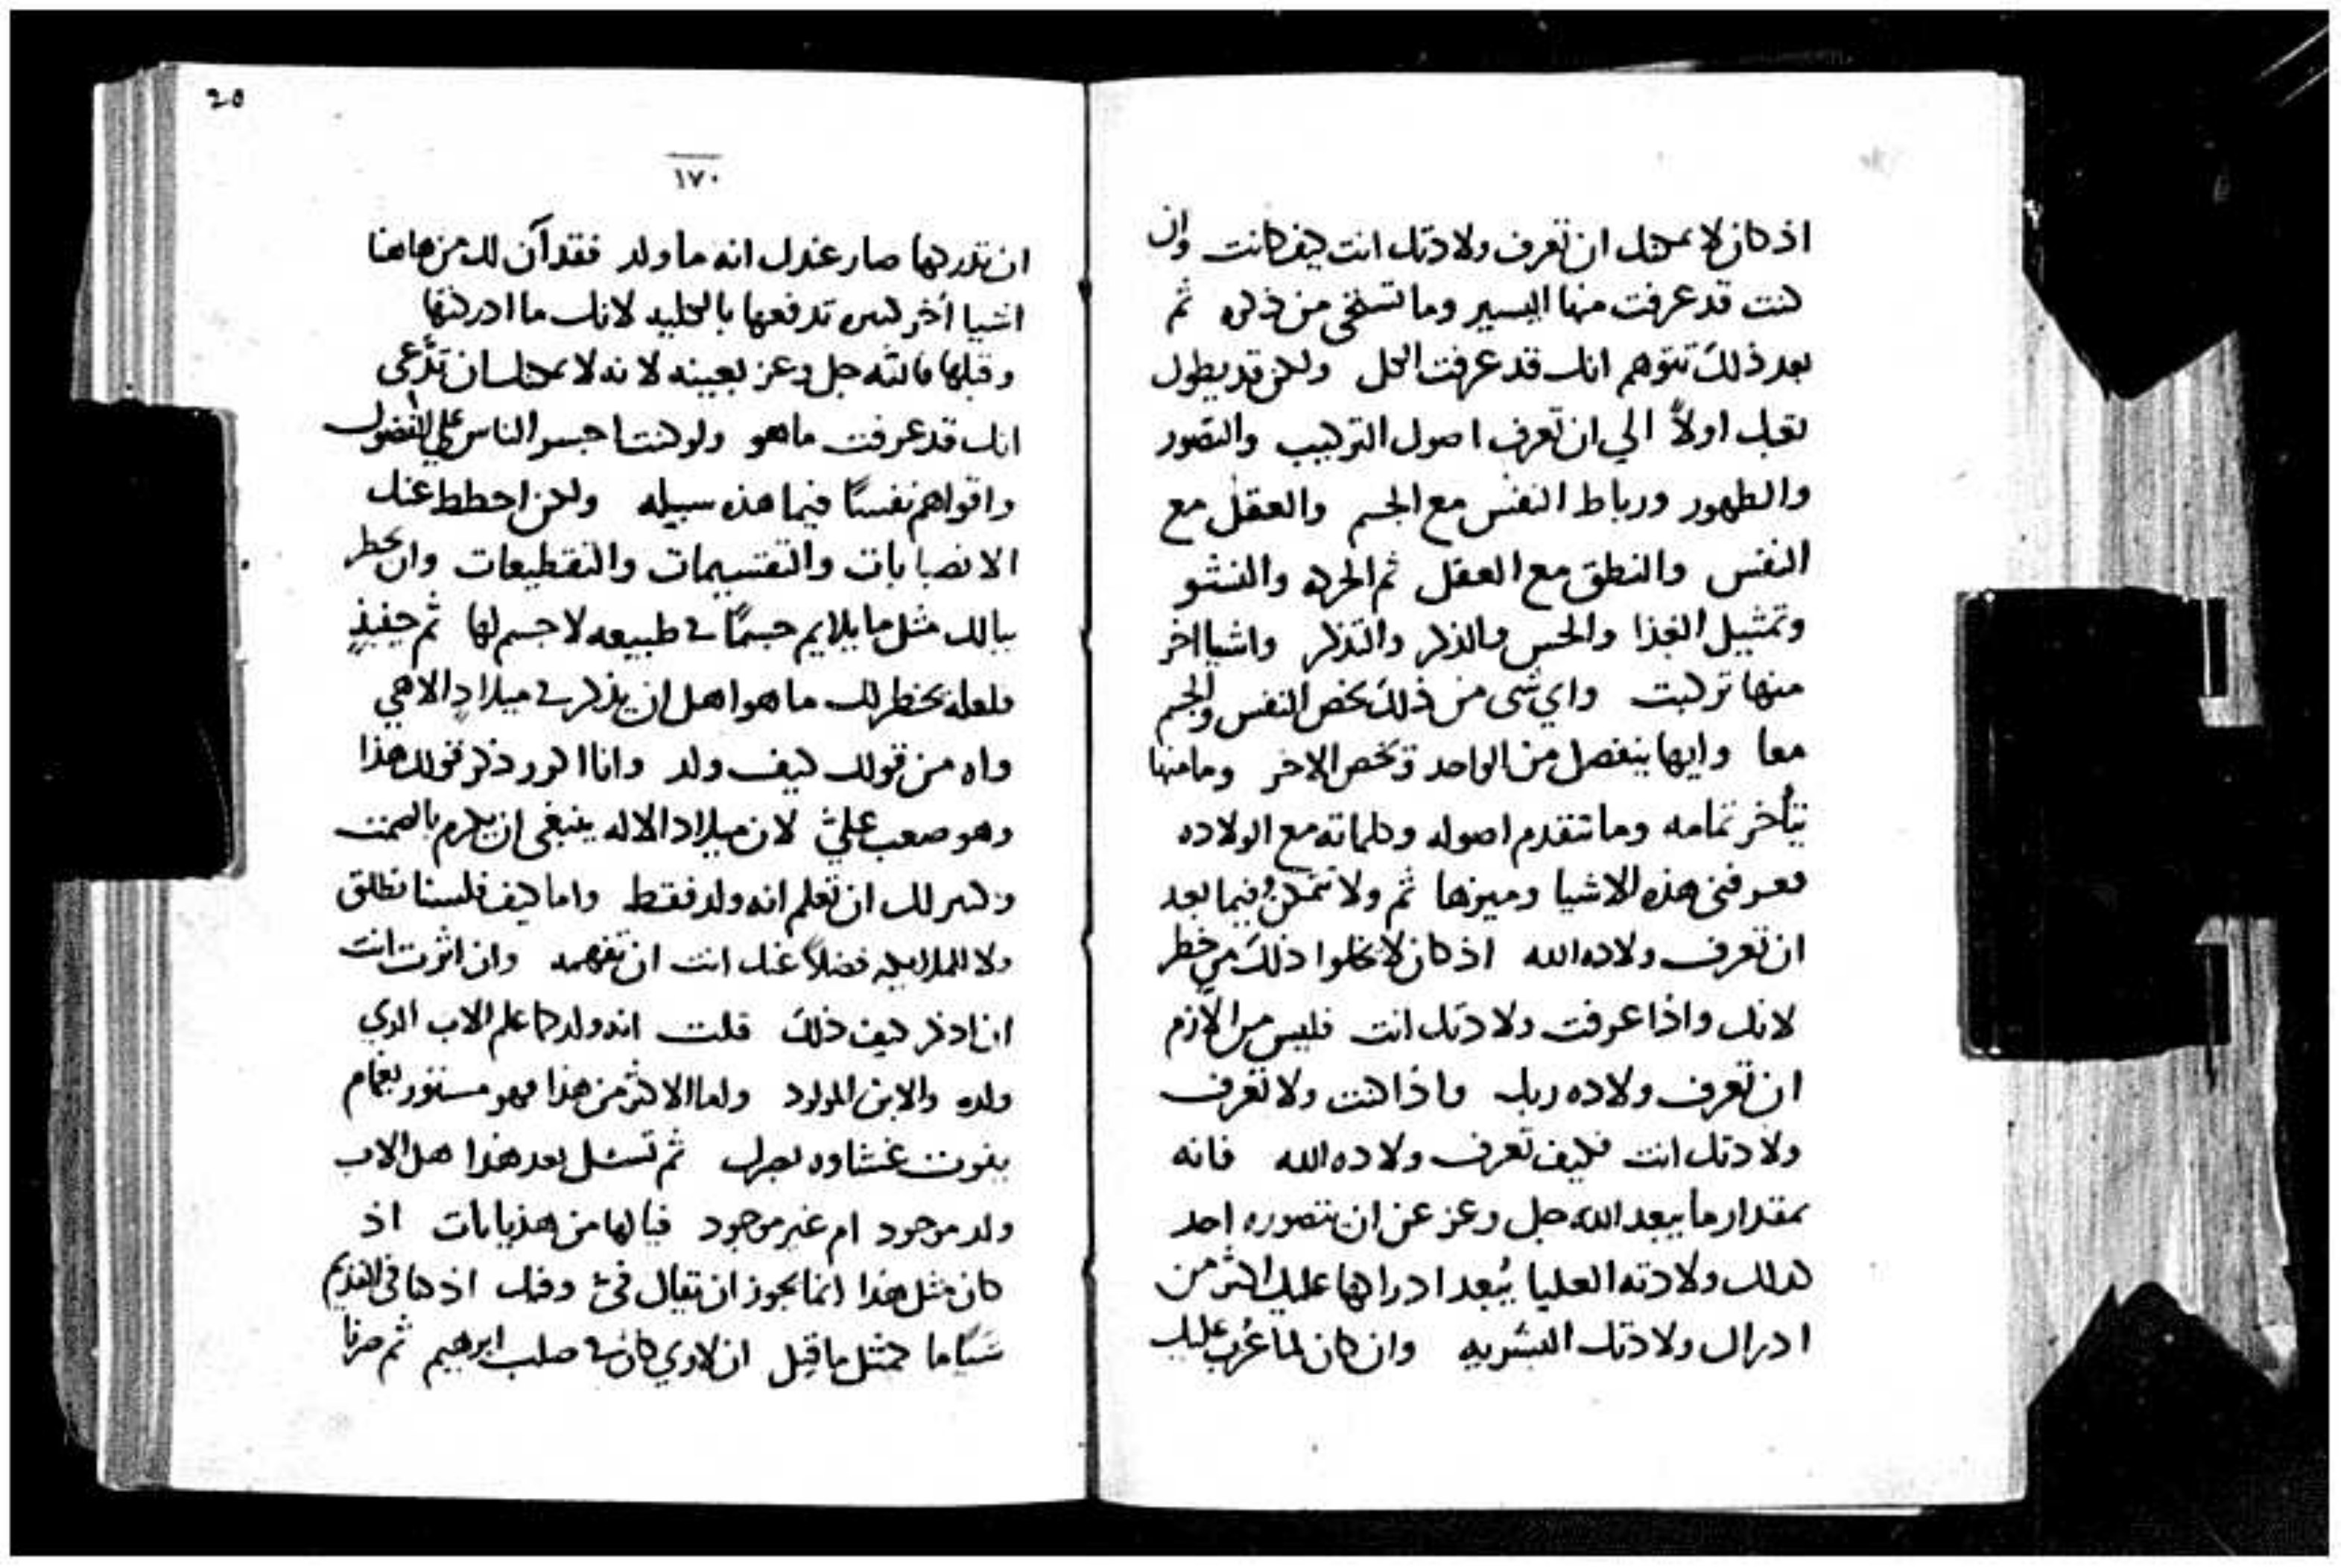 اذ كان لا يمكنك ان تعرف ولادتك انت كيف كانت وان
كنت قد عرفت منها اليسير وما تستحى من ذكره ثم
بعد ذلك تتوهم انك قد عرفت الكل ولكن قد يطول
تعبك اولاً الي ان تعرف اصول التركيب والتصور
والظهور ورباط النفس مع الجسم والعقل مع
النفس والنطق مع العقل ثم الحركه والنشو
وتمثيل الغذا والحس والذكر والتذكر واشيا اخر
منها تركبت واي شى من ذلك يخص النفس والجسم
معا وايها ينفصل من الواحد ويخص الاخر وما منها
يتأخر تمامه وما تتقدم اصوله وكلماته مع الولاده
فعرفنى هذه الاشيا وميزها ثم ولا تتمكن فيما بعد
ان تعرف ولاده الله اذ كان لا يخلوا ذلك من خطر
لانك واذا عرفت ولادتك انت فليس من الازم
ان تعرف ولاده ربك واذا كنت ولا تعرف
ولادتك انت فكيف تعرف ولاده الله فانه
بمقدار ما يبعد الله جل وعز عن ان يتصوره احد
كذلك ولادته العليا يُبعد ادراكها عليك اكثر من
ادراك ولادتك البشريه وان كان لما عَزب عليك
20
١٧٠
ان تدركها صار عندك انه ما ولد فقد آن لك من هاهنا
اشيا أخر كثيره تدفعها بالكليه لانك ما ادركتها
وقبلها فالله جل وعز بعينه لانه لا يمكنك ان تدّعى
انك قد عرفت ما هو ولو كنت اجسر الناس على الفضول
واقواهم نفسًا فيما هذه سبيله ولكن احطط عنك
الانصبابات والتقسيمات والتقطيعات وان يخطر
ببالك مثل ما يلايم جسمًا في طبيعه لا جسم لها ثم حينئذٍ
فلعله يخطر لك ما هو اهل ان يذكر في ميلادٍ الاهي
واه من قولك كيف ولد وانا اكرر ذكر قولك هذا
وهو صعب عليّ لان ميلاد الاله ينبغى ان يكرم بالصمت
وكثير لك ان تعلم انه ولد فقط واما كيف فلسنا نطلق
ولا للملايكه فضلاً عنك انت ان تفهمه وان اثرت انت
ان اذكر كيف ذلك قلت انه ولد كما علم الاب الذي
ولده والابن المولود واما الاكثر من هذا فهو مستور بغمام
يفوت غشاوه بصرك ثم تسئل بعد هذا هل الاب
ولد موجود ام غير موجود فيالها من هذيانات اذ
كان مثل هذا انما يجوز ان يقال فيّ وفيك اذ كنا في القديم
شيًا ما كمثل ما قيل ان لاوي كان في صلب ابرهيم ثم صرنا